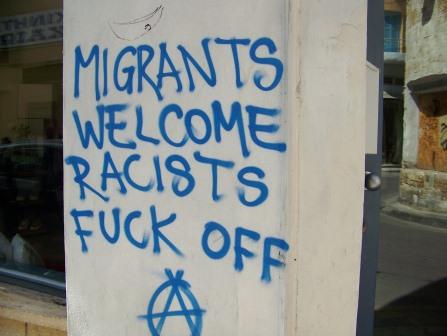 MIGRANTS
WELCOME
RACISTS
FUCK OFF